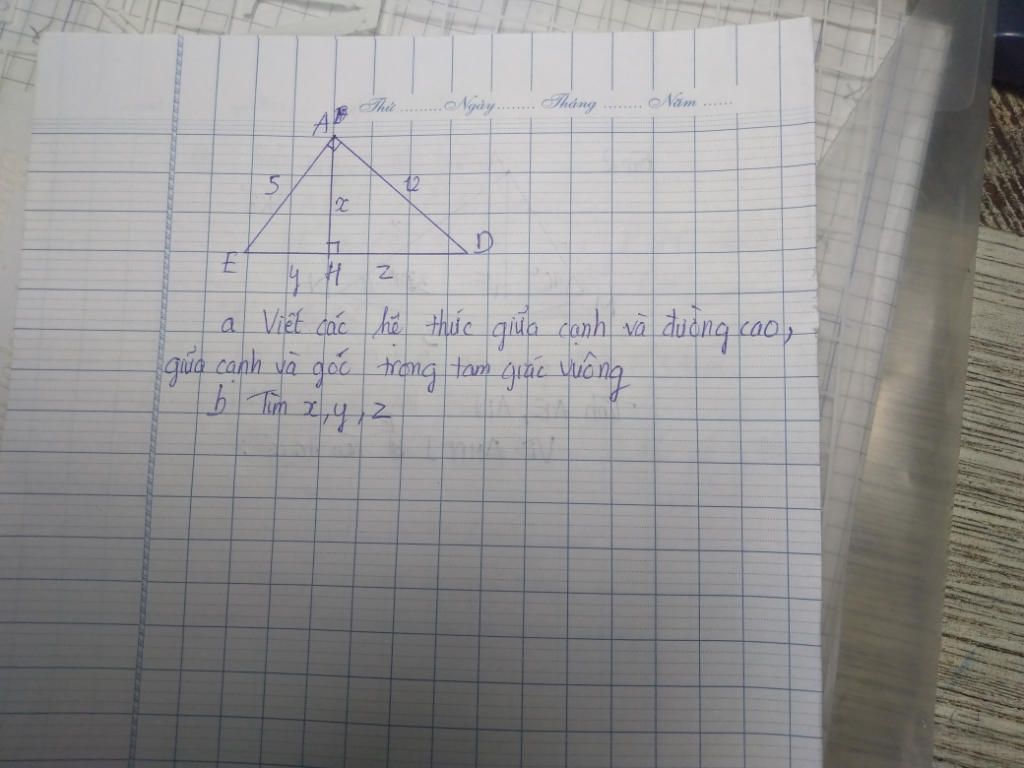 Thứ ......... Ngày ........ Tháng ........ Năm ......
A
5
12
x
E
y
H
z
D
a Viết các hệ thức giữa cạnh và đường cao,
giữa cạnh và góc trong tam giác vuông
b Tìm x, y, z